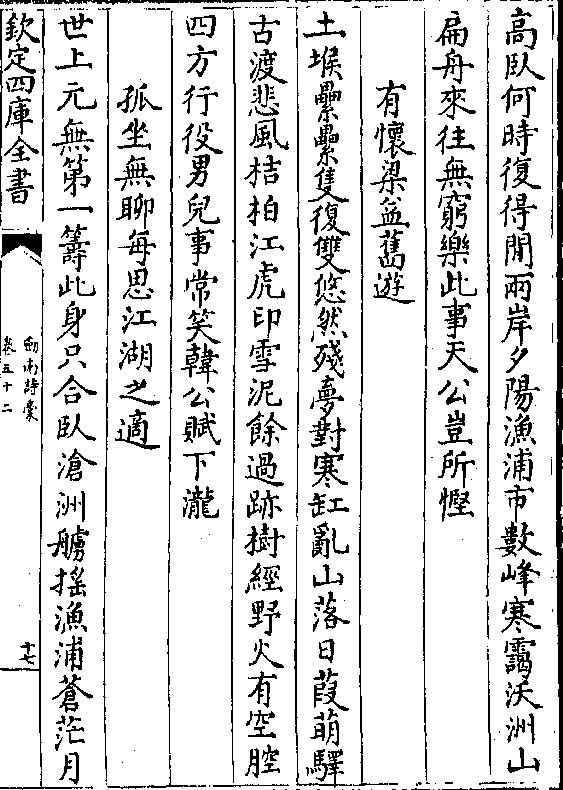 高臥何時復得閒兩岸夕陽漁浦市數峰寒靄沃洲山
扁舟來往無窮樂此事天公豈所慳
有懷梁益舊遊
土堠纍纍隻復雙悠然殘夢對寒缸亂山落日葭萌驛
古渡悲風桔柏江虎印雪泥餘過跡樹經野火有空腔
四方行役男兒事常笑韓公賦下瀧
孤坐無聊每思江湖之適
世上元無第一籌此身只合臥滄洲艣搖漁浦蒼茫月
欽定四庫全書
劍南詩稾
卷五十二
十七